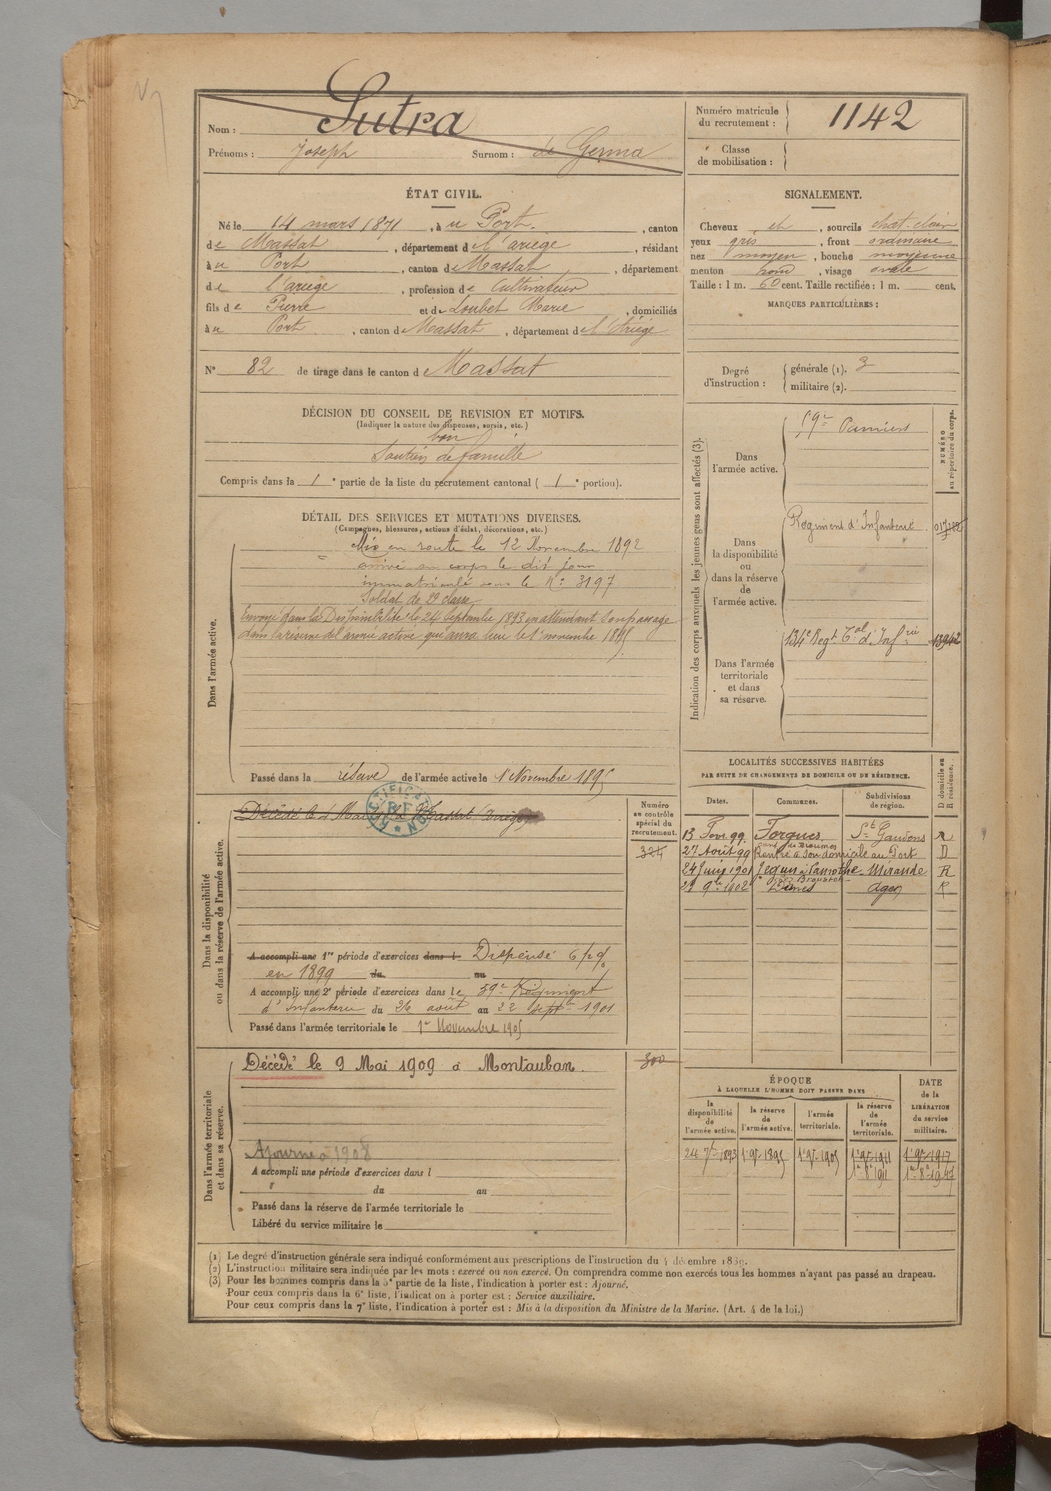 Nom : Sutra
Prénoms : Joseph Surnom : de Germa
Numéro matricule du recrutement : 1142
Classe de mobilisation :
ÉTAT CIVIL.
Né le 14 mars 1871, à u Port, canton
de Massat, département de l'ariège, résidant
à u Port, canton de Massat, département
de l'ariège, profession de Cultivateur
fils de Pierre et de Loubet Marie, domiciliés
à u Port, canton de Massat, département de l'Ariège
N° 82 de tirage dans le canton de Massat
SIGNALEMENT.
Cheveux et, sourcils chat. clair
yeux gris, front ordinaire
nez moyen, bouche moyenne
menton rond, visage ovale
Taille : 1 m. 60 cent. Taille rectifiée : 1 m. cent.
MARQUES PARTICULIÈRES :
Degré d'instruction : générale (1). 3
militaire (2).
DÉCISION DU CONSEIL DE REVISION ET MOTIFS.
(Indiquer la nature des dispenses, sursis, etc.)
bon
Soutien de famille
Compris dans la 1e partie de la liste du recrutement cantonal ( 1e portion).
DÉTAIL DES SERVICES ET MUTATIONS DIVERSES.
(Campagnes, blessures, actions d'éclat, décorations, etc.)
Dans l'armée active.
Mis en route le 12 Novembre 1892
arrivé au corps le dit jour
immatriculé sous le N° 3197
Soldat de 2e classe
Envoyé dans la Disponibilité le 24 Septembre 1893 en attendant son passage
dans la réserve de l'armée active qui aura lieu le 1er novembre 1895
Passé dans la réserve de l'armée active le 1er Novembre 1895
Indication des corps auxquels les jeunes gens sont affectés (3).
NUMÉRO au répertoire du corps.
Dans l'armée active.
59e Pamiers
Dans la disponibilité ou dans la réserve de l'armée active.
Régiment d'Infanterie
Dans l'armée territoriale et dans sa réserve.
134e Regt Tal d'Infrie 13942
LOCALITÉS SUCCESSIVES HABITÉES
PAR SUITE DE CHANGEMENTS DE DOMICILE OU DE RÉSIDENCE.
Dates. Communes. Subdivisions de région. D domicile ou R résidence.
13 Fevr 99. Forgues St Gaudens R
27 Août 99 Rentré à son domicile au Port D
24 Juin 1901 Mirande R
1902 Agen R
Dans la disponibilité ou dans la réserve de l'armée active.
Numéro au contrôle spécial du recrutement.
Décédé le Massat (Ariège)
RECTIFICATION
324
A accompli une 1re période d'exercices dans l Dispensé
en 1899 du au
A accompli une 2e période d'exercices dans le 59e Régiment
d'Infanterie du 26 août au 22 Sept 1901
Passé dans l'armée territoriale le 1er Novembre 1905
Dans l'armée territoriale et dans sa réserve.
Décédé le 9 Mai 1909 à Montauban.
300
Ajourné à 1908
A accompli une période d'exercices dans l
du au
Passé dans la réserve de l'armée territoriale le
Libéré du service militaire le
ÉPOQUE
À LAQUELLE L'HOMME DOIT PASSER DANS
la disponibilité de l'armée active. la réserve de l'armée active. l'armée territoriale. la réserve de l'armée territoriale.
DATE de la LIBÉRATION du service militaire.
24 7bre 1893 1er 9bre 1895 1er 9bre 1905 1er 9bre 1911 1er 9bre 1917
(1) Le degré d'instruction générale sera indiqué conformément aux prescriptions de l'instruction du 4 décembre 1889.
(2) L'instruction militaire sera indiquée par les mots : exercé ou non exercé. On comprendra comme non exercés tous les hommes n'ayant pas passé au drapeau.
(3) Pour les hommes compris dans la 5e partie de la liste, l'indication à porter est : Ajourné.
Pour ceux compris dans la 6e liste, l'indication à porter est : Service auxiliaire.
Pour ceux compris dans la 7e liste, l'indication à porter est : Mis à la disposition du Ministre de la Marine. (Art. 4 de la loi.)